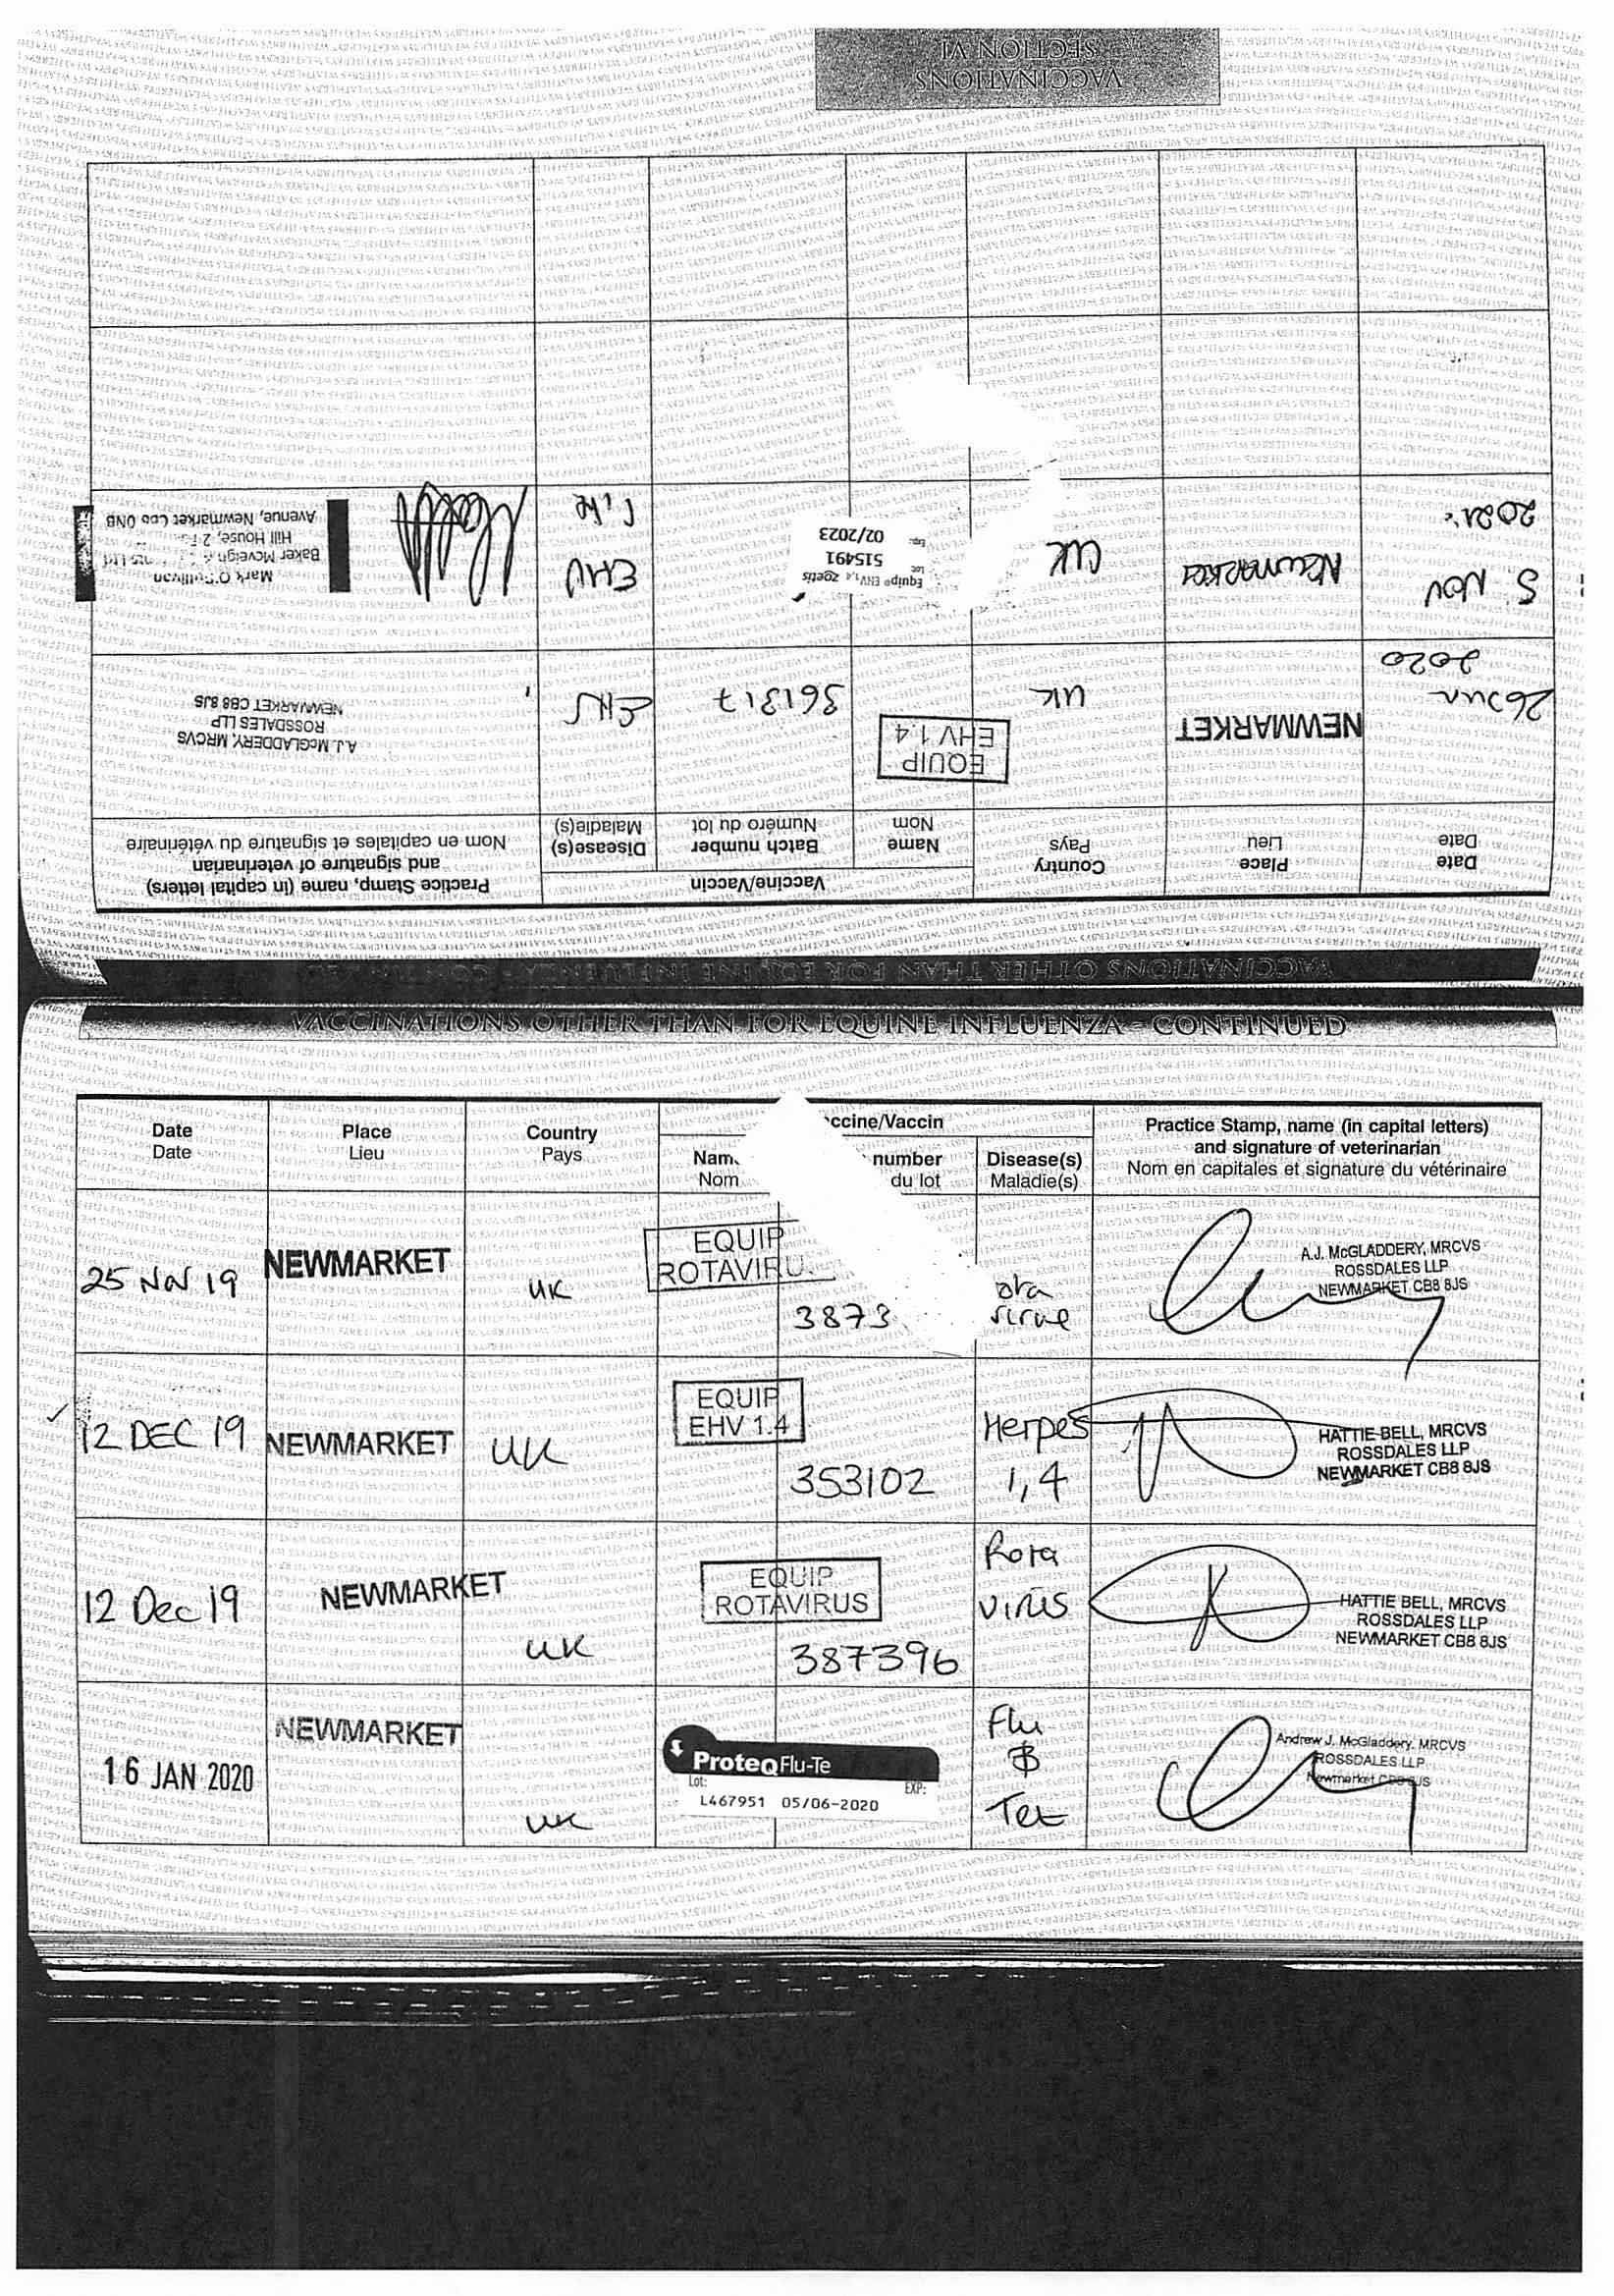 VACCINATIONS
SECTION VI
VACCINATIONS OTHER THAN FOR EQUINE INFLUENZA
Date
Date
Place
Lieu
Country
Pays
Vaccine/Vaccin
Name
Nom
Batch number
Numéro du lot
Disease(s)
Maladie(s)
Practice Stamp, name (in capital letters)
and signature of veterinarian
Nom en capitales et signature du vétérinaire
26 Jun
2020
NEWMARKET
UK
EQUIP
EHV 1.4
361317
EHV
A.J. McGLADDERY, MRCVS
ROSSDALES LLP
NEWMARKET CB8 8JS
5 NOV
2021
Newmarket
UK
Equip® EHV1,4 zoetis
Lot 515491
Exp. 02/2023
EHV
Mark O'Sullivan
Baker Mcveigh
Hill House,
Avenue, Newmarket 0NB
VACCINATIONS OTHER THAN FOR EQUINE INFLUENZA - CONTINUED
Date
Date
Place
Lieu
Country
Pays
ccine/Vaccin
Nam
Nom
number
du lot
Disease(s)
Maladie(s)
Practice Stamp, name (in capital letters)
and signature of veterinarian
Nom en capitales et signature du vétérinaire
25 Nov 19
NEWMARKET
UK
EQUIP
ROTAVIRU
3873
ota
A.J. McGLADDERY, MRCVS
ROSSDALES LLP
NEWMARKET CB8 8JS
12 DEC 19
NEWMARKET
UK
EQUIP
EHV 1.4
353102
Herpes
1,4
HATTIE BELL, MRCVS
ROSSDALES LLP
NEWMARKET CB8 8JS
12 Dec 19
NEWMARKET
UK
EQUIP
ROTAVIRUS
387396
Rota
virus
HATTIE BELL, MRCVS
ROSSDALES LLP
NEWMARKET CB8 8JS
16 JAN 2020
NEWMARKET
UK
ProteqFlu-Te
Lot: EXP:
L467951 05/06-2020
Flu
&
Tet
Andrew J. McGladdery, MRCVS
ROSSDALES LLP
Newmarket CB8 8JS